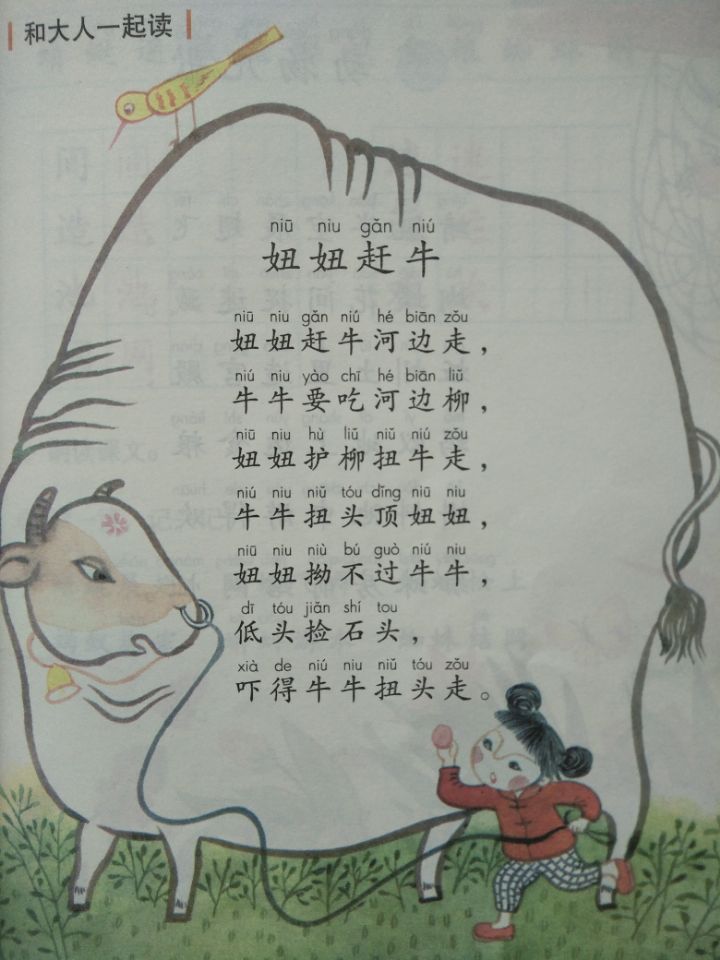 和大人一起读
niū niu gǎn niú
妞妞赶牛
niū niu gǎn niú hé biān zǒu
妞妞赶牛河边走，
niú niu yào chī hé biān liǔ
牛牛要吃河边柳，
niū niu hù liǔ niǔ niú zǒu
妞妞护柳扭牛走，
niú niu niǔ tóu dǐng niū niu
牛牛扭头顶妞妞，
niū niu niù bú guò niú niu
妞妞拗不过牛牛，
dī tóu jiǎn shí tou
低头捡石头，
xià de niú niu niǔ tóu zǒu
吓得牛牛扭头走。